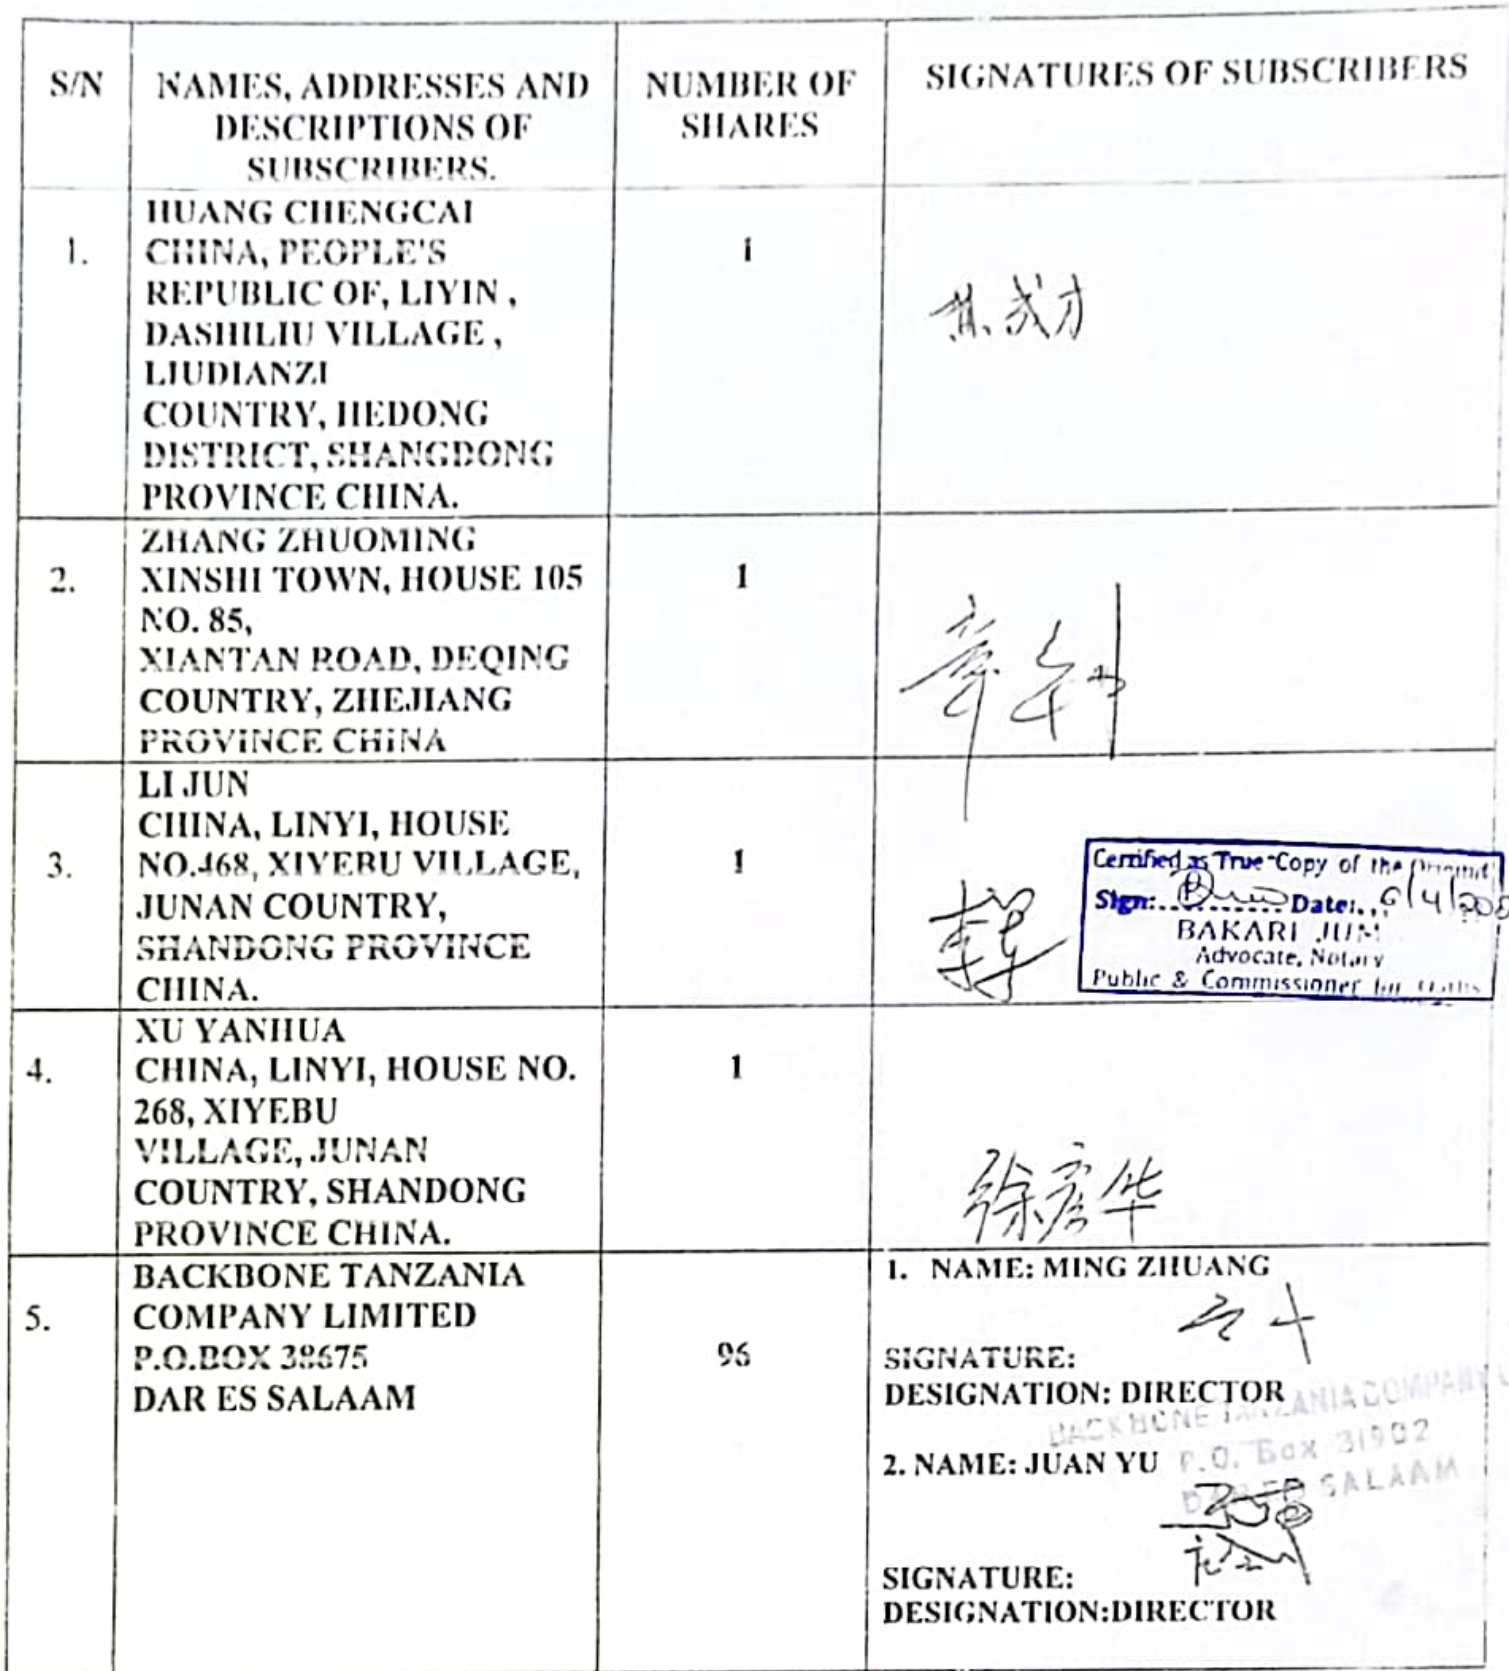 S/N
NAMES, ADDRESSES AND
DESCRIPTIONS OF
SUBSCRIBERS.
NUMBER OF
SHARES
SIGNATURES OF SUBSCRIBERS
1.
HUANG CHENGCAI
CHINA, PEOPLE'S
REPUBLIC OF, LIYIN ,
DASHILIU VILLAGE ,
LIUDIANZI
COUNTRY, HEDONG
DISTRICT, SHANGDONG
PROVINCE CHINA.
1
成才
2.
ZHANG ZHUOMING
XINSHI TOWN, HOUSE 105
NO. 85,
XIANTAN ROAD, DEQING
COUNTRY, ZHEJIANG
PROVINCE CHINA
1
章
3.
LI JUN
CHINA, LINYI, HOUSE
NO.468, XIYEBU VILLAGE,
JUNAN COUNTRY,
SHANDONG PROVINCE
CHINA.
1
Certified as True Copy of the
Sign: Date: 6/4/20
BAKARI
Advocate, Notary
Public & Commissioner for Oaths
4.
XU YANHUA
CHINA, LINYI, HOUSE NO.
268, XIYEBU
VILLAGE, JUNAN
COUNTRY, SHANDONG
PROVINCE CHINA.
1
徐彦华
5.
BACKBONE TANZANIA
COMPANY LIMITED
P.O.BOX 38675
DAR ES SALAAM
96
1. NAME: MING ZHUANG
SIGNATURE:
DESIGNATION: DIRECTOR
BACKBONE TANZANIA COMPANY
P.O. Box 31902
DAR ES SALAAM
2. NAME: JUAN YU
SIGNATURE:
DESIGNATION:DIRECTOR